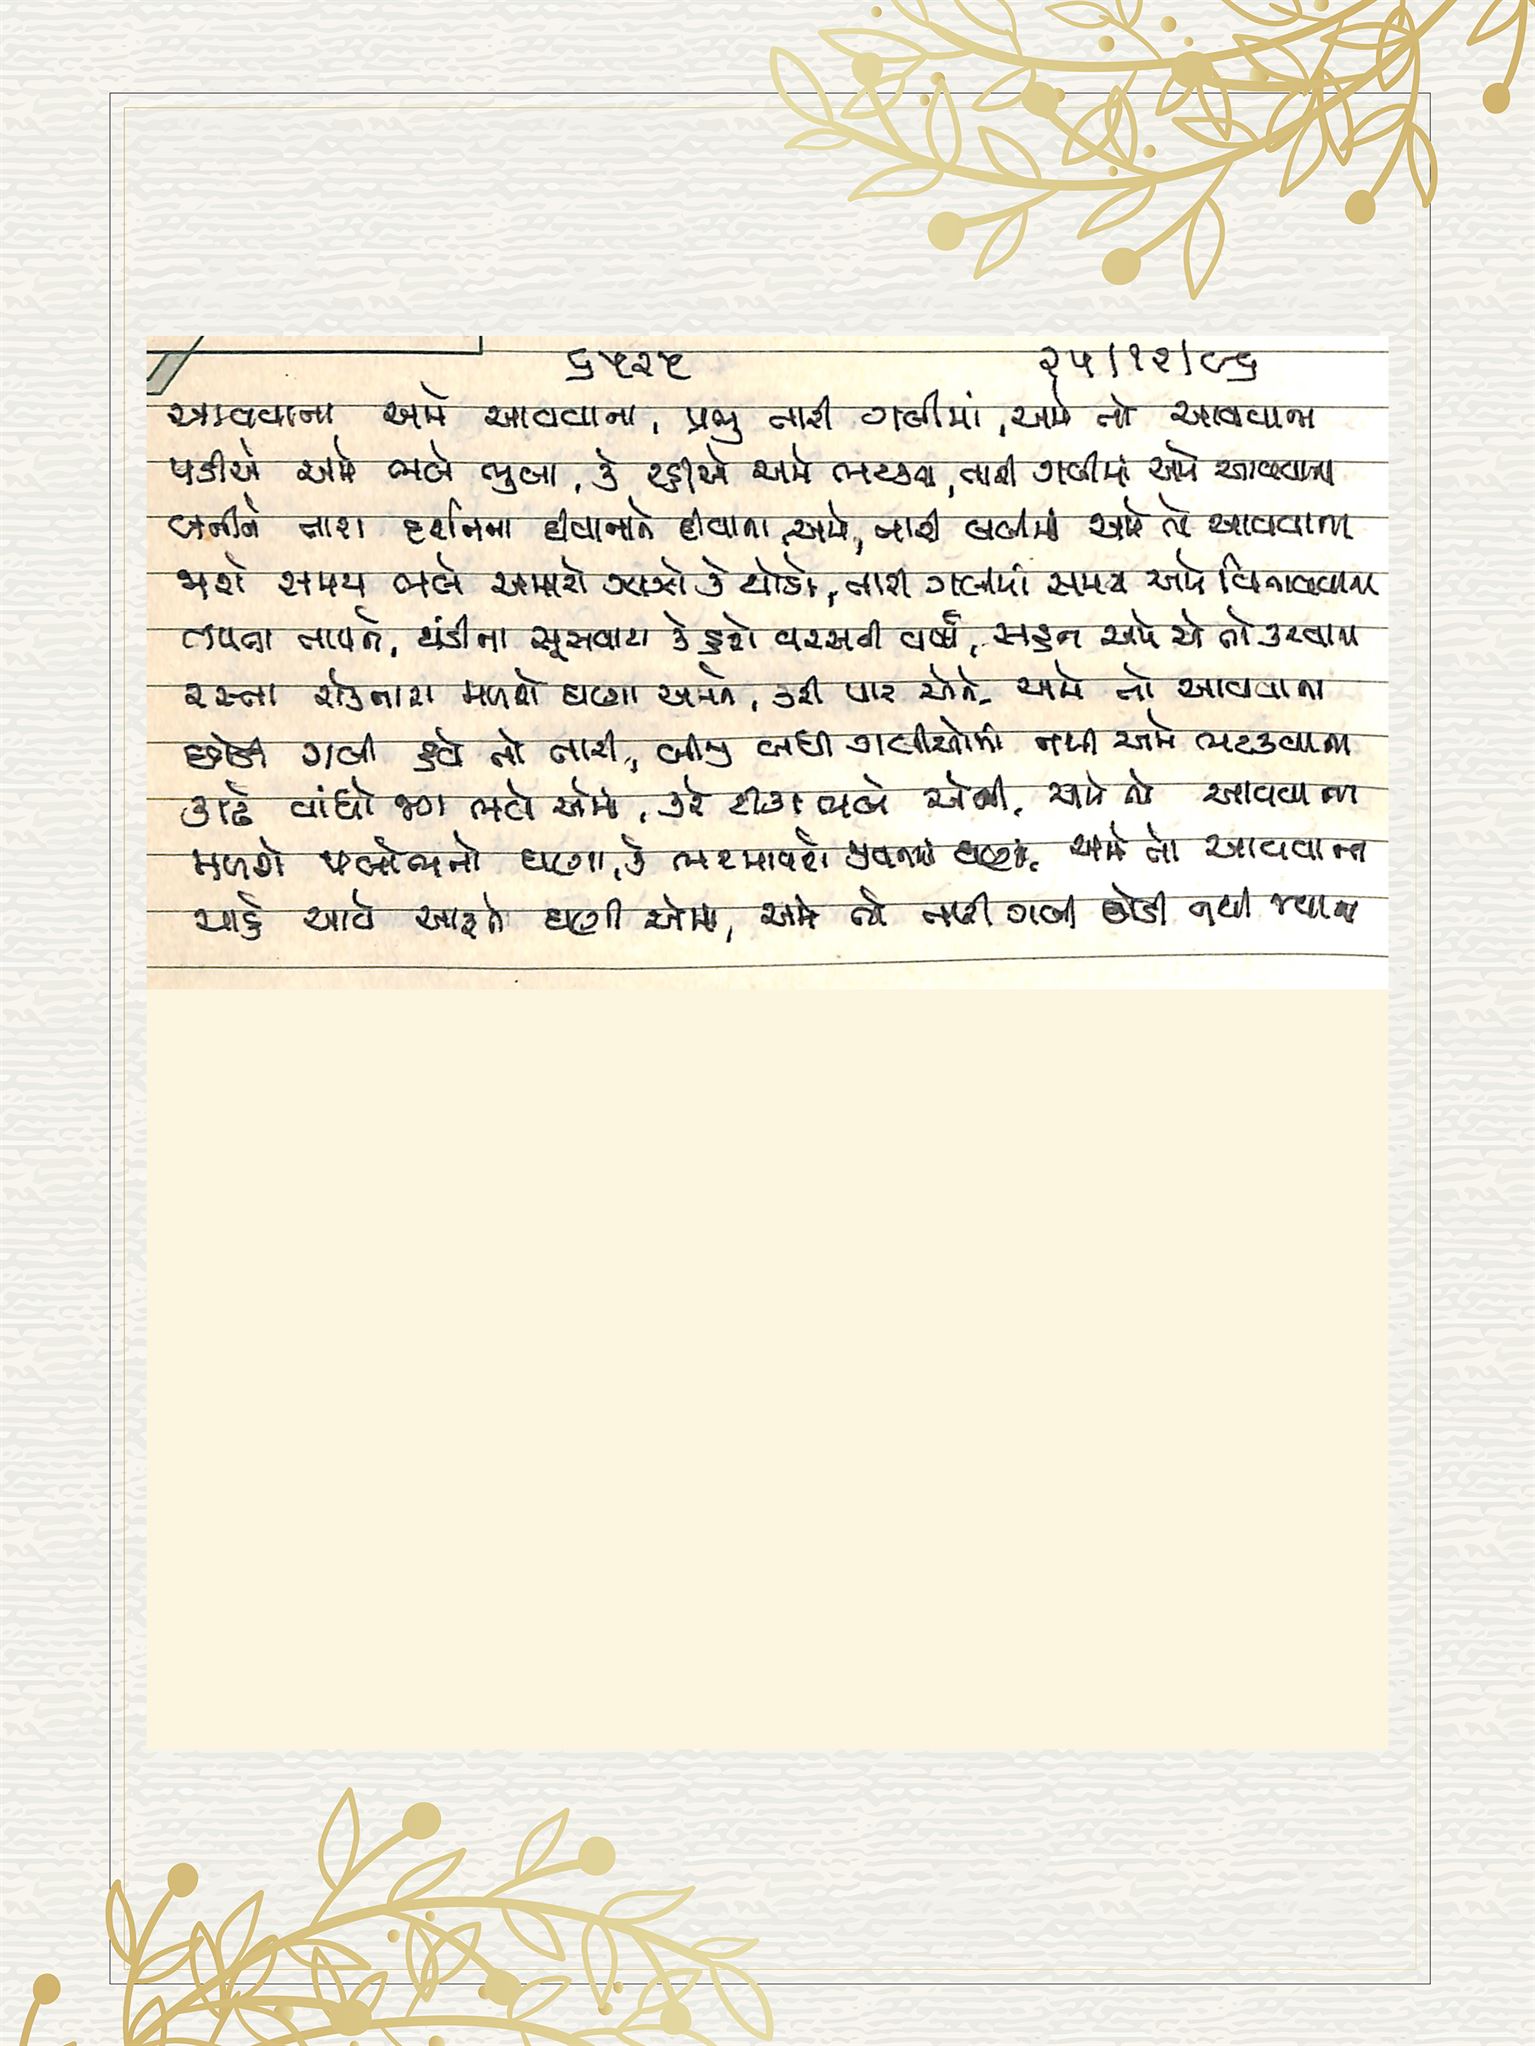 ૬૫૨૫ ૨૫/૧૨/૯૬
આવવાના અમે આવવાના, પ્રભુ તારી ગલીમાં, અમે તો આવવાના
પડીએ અમે ભલે ભુલા, કે રહીએ અમે ભટકતા, તારી ગલીમાં અમે આવવાના
બનીને તારા દર્શનના દીવાનાને દીવાના અમે, તારી ગલીમાં અમે તો આવવાના
જાશે સમય ભલે અમારો ઝાઝો કે થોડો, તારી ગલીમાં સમય અમે વિતાવવાના
તાપના તાપને, ઠંડીના સૂસવાટા કે હશે વરસતી વર્ષા, સહન અમે એ તો કરવાના
રસ્તા રોકનારા મળશે ઘણા અમને, કરી પાર એને, અમે તો આવવાના
છોડી ગલી હવે તો તારી, બીજી બધી ગલીઓમાં નથી અમે ભટકવાના
કાઢે વાંધો જગ ભલે એમાં, કરે ટીકા ભલે એની, અમે તો આવવાના
મળશે પ્રલોભનો ઘણા, કે ભરમાવશે જીવનમાં ઘણાં, અમે તો આવવાના
ચાહે આવે આફતો ઘણી એમાં, અમે તો તારી ગલી છોડી નથી જવાના